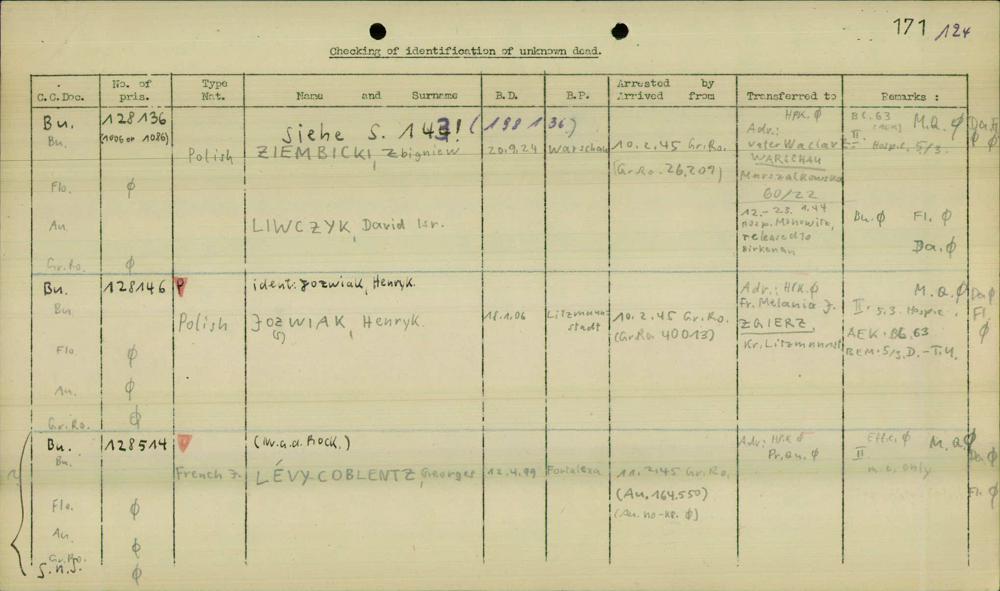 171 124
Checking of identification of unknown dead.
C.C.Doc. No. of pris. Type Nat. Name and Surname B.D. B.P. Arrested by Arrived from Transferred to Remarks :
Bu. 128136 siehe S. 143! (198136.) HPK. ϕ BL.63 M.Q. ϕ Da.ϕ
Bu. Adv.: II. Hospit. 5/3.
Polish ZIEMBICKI, Zbigniew 20.9.24 Warschau 10.2.45 Gr.Ro. Vater Waclav
(Gr.Ro. 26,209) WARSCHAU
Flo. ϕ Marszalkowska
60/22
Au. LIWCZYK, David Isr. 12.-23.1.44 Bu.ϕ Fl. ϕ
Hosp. Monowitz,
released to Da.ϕ
Birkenau
Gr.Ro. ϕ
Bu. 128146 P ident: Jozwiak, Henryk. Adr.: HPK.ϕ M.Q.ϕ Da.ϕ
Bu. Fr. Melania J. II. 5.3. Hospit. Fl.
Polish JOZWIAK, Henryk. 18.1.06 Litzmannstadt 10.2.45 Gr.Ro. ZGIERZ, ϕ
(s) (Gr.Ro. 40013) Kr. Litzmannst. AEK. BL.63
Flo ϕ BEM. 5/3. D.-T.U.
Au. ϕ
Gr.Ro. ϕ
Bu. 128514 (M.a.d. Rock.) Adv.: HPK ϕ Eff.K. ϕ M.Q.ϕ
Bu. Pr.Qu. ϕ II. Da.ϕ
French J. LÉVY-COBLENTZ, Georges 12.4.99 Fortaleza 11.2.45 Gr.Ro. m.c. only
Flo. ϕ (Au. 164.550) Fl. ϕ
(Au. no-kp. ϕ)
Au. ϕ
Gr.Ro.
S.n.J. ϕ